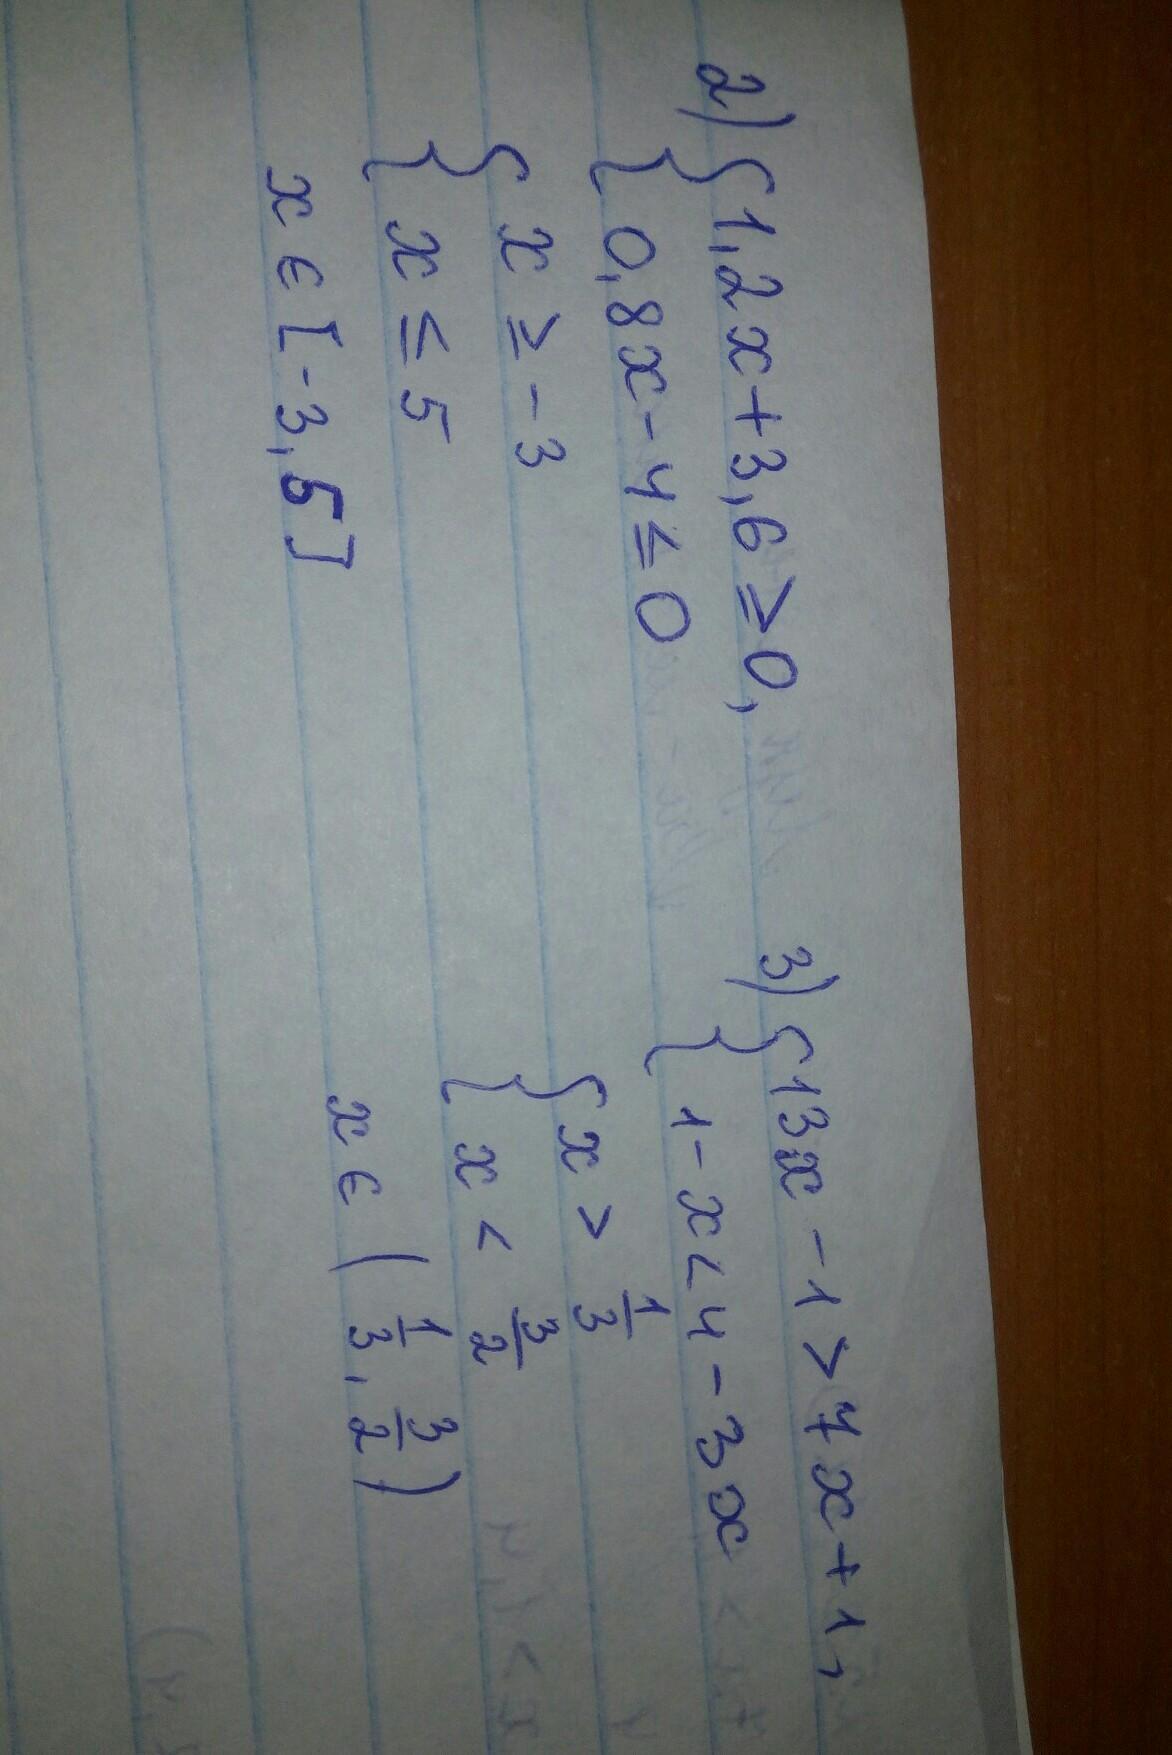 2) { 1,2x+3,6≥0,
0,8x-4≤0
{ x≥-3
x≤5
x∈[-3,5]
3) { 13x-1>7x+1,
1-x<4-3x
{ x>1/3
x<3/2
x∈(1/3, 3/2)